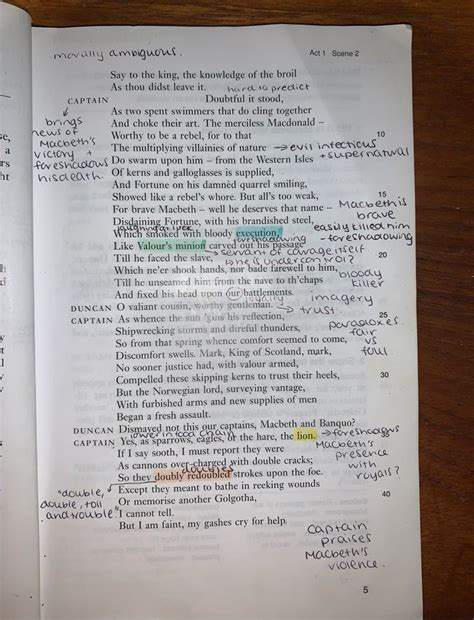 morally ambiguous.
Act 1 Scene 2
Say to the king, the knowledge of the broil
As thou didst leave it.
hard to predict
CAPTAIN Doubtful it stood,
As two spent swimmers that do cling together
And choke their art. The merciless Macdonald –
Worthy to be a rebel, for to that 10
The multiplying villainies of nature → evil infectious
+ supernatural
Do swarm upon him – from the Western Isles
brings
news of
Macbeth's
victory +
foreshadows
his death.
Of kerns and galloglasses is supplied,
And Fortune on his damnèd quarrel smiling,
Showed like a rebel's whore. But all's too weak, 15
For brave Macbeth – well he deserves that name –
Macbeth is
brave
Disdaining Fortune, with his brandished steel,
Which smoked with bloody execution,
easily killed him
- foreshadowing
foreshadowing
Like Valour's minion carved out his passage
→ servant of courage itself
Till he faced the slave, 20
↳ he is under control?
Which ne'er shook hands, nor bade farewell to him,
Till he unseamed him from the nave to th'chaps
bloody
killer
And fixed his head upon our battlements.
loyalty
imagery
DUNCAN O valiant cousin, worthy gentleman.
→ trust.
CAPTAIN As whence the sun 'gins his reflection, 25
Shipwrecking storms and direful thunders,
paradoxes.
fair
vs
foul
So from that spring whence comfort seemed to come,
Discomfort swells. Mark, King of Scotland, mark,
No sooner justice had, with valour armed,
Compelled these skipping kerns to trust their heels, 30
But the Norwegian lord, surveying vantage,
With furbished arms and new supplies of men
Began a fresh assault.
DUNCAN Dismayed not this our captains, Macbeth and Banquo?
lower in food chain
CAPTAIN Yes, as sparrows, eagles, or the hare, the lion.
→ foreshadows
Macbeth's
presence
with
royals?
If I say sooth, I must report they were
As cannons over-charged with double cracks;
So they doubly redoubled strokes upon the foe.
Except they meant to bathe in reeking wounds
"double,
double, toil
and trouble"
Or memorise another Golgotha, 40
I cannot tell.
But I am faint, my gashes cry for help.
Captain
praises
Macbeth's
violence.
5